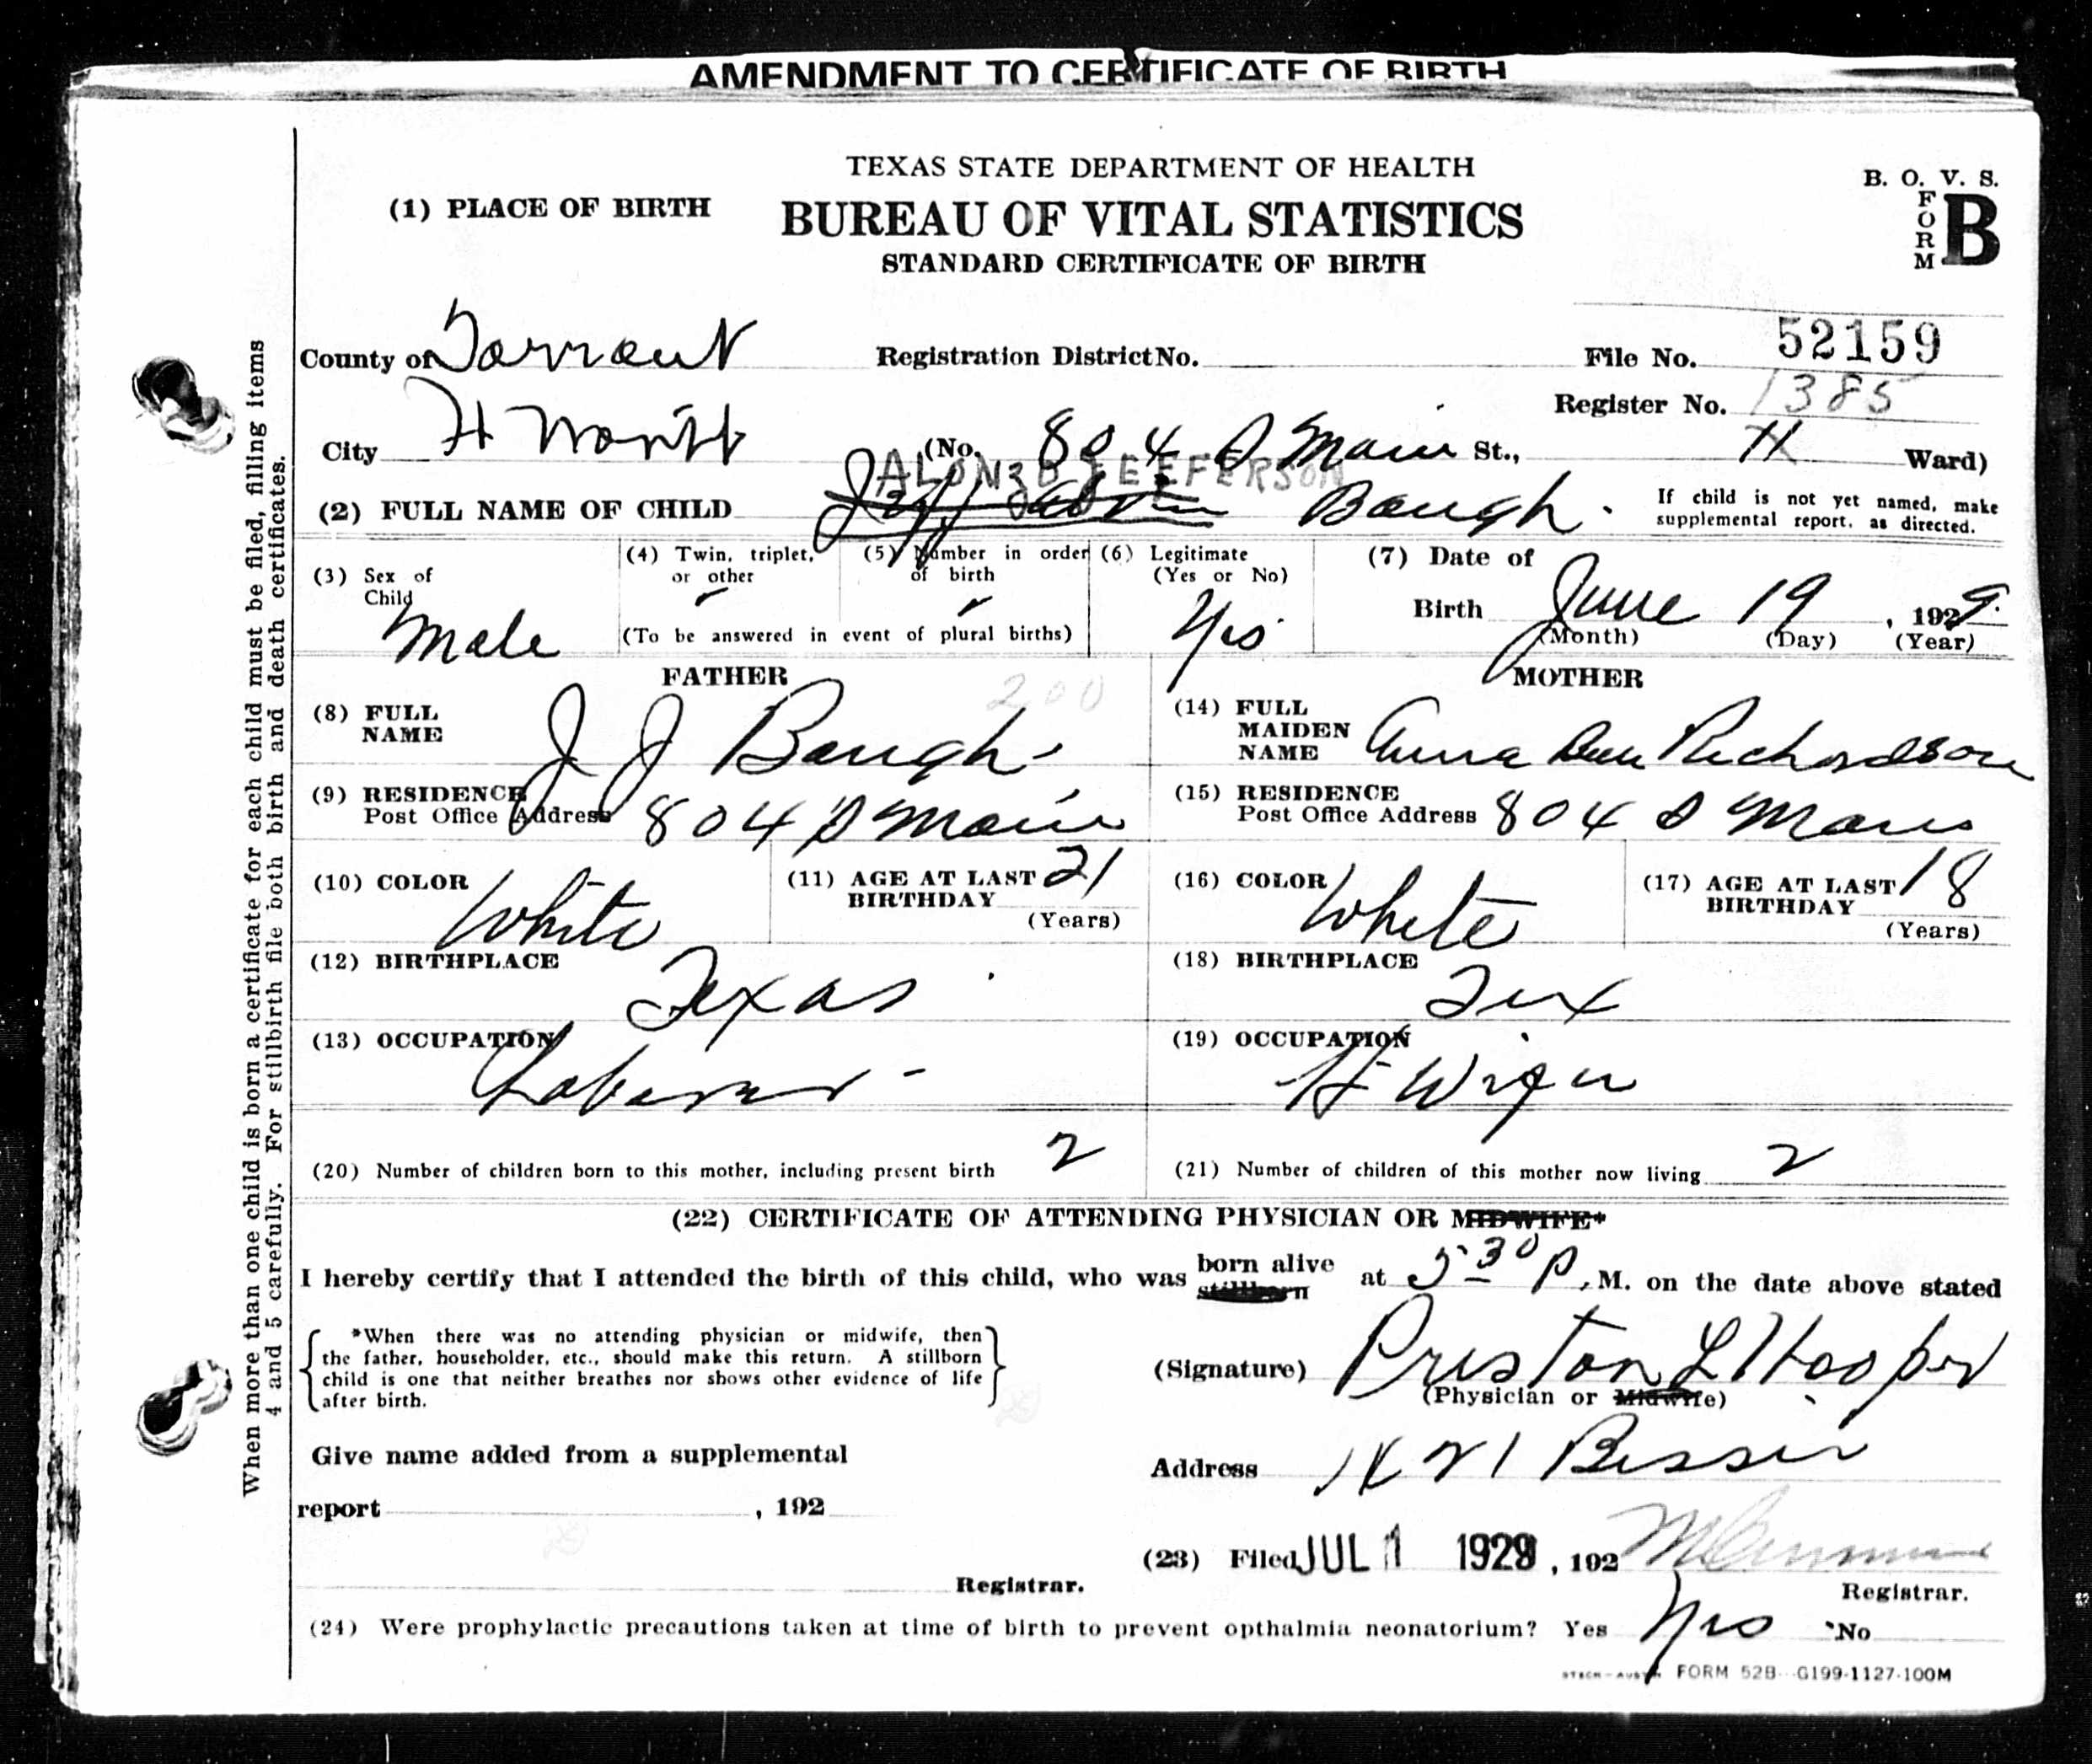 AMENDMENT TO CERTIFICATE OF BIRTH
TEXAS STATE DEPARTMENT OF HEALTH
B. O. V. S.
FORM B
(1) PLACE OF BIRTH
BUREAU OF VITAL STATISTICS
STANDARD CERTIFICATE OF BIRTH
County of Tarrant Registration District No. File No. 52159
Register No. 1385
City Ft Worth (No. 804 S Main St., Ward)
ALONZO JEFFERSON
(2) FULL NAME OF CHILD Baugh. If child is not yet named, make supplemental report, as directed.
(3) Sex of Child Male
(4) Twin, triplet, or other
(5) Number in order of birth
(To be answered in event of plural births)
(6) Legitimate (Yes or No) Yes
(7) Date of Birth June 19, 1929.
(Month) (Day) (Year)
FATHER
200
(8) FULL NAME J J Baugh
(9) RESIDENCE Post Office Address 804 S Main
(10) COLOR White
(11) AGE AT LAST BIRTHDAY 21 (Years)
(12) BIRTHPLACE Texas
(13) OCCUPATION Laborer -
MOTHER
(14) FULL MAIDEN NAME Anna Richardson
(15) RESIDENCE Post Office Address 804 S Main
(16) COLOR White
(17) AGE AT LAST BIRTHDAY 18 (Years)
(18) BIRTHPLACE Tex
(19) OCCUPATION H Wife
(20) Number of children born to this mother, including present birth 2
(21) Number of children of this mother now living 2
(22) CERTIFICATE OF ATTENDING PHYSICIAN OR MIDWIFE*
I hereby certify that I attended the birth of this child, who was born alive stillborn at 5 30 P. M. on the date above stated
*When there was no attending physician or midwife, then
the father, householder, etc., should make this return. A stillborn
child is one that neither breathes nor shows other evidence of life
after birth.
(Signature) Preston L Hooper
(Physician or Midwife)
Give name added from a supplemental
report , 192
Registrar.
Address 1421
(23) Filed JUL 1 1929, 192
Registrar.
(24) Were prophylactic precautions taken at time of birth to prevent opthalmia neonatorium? Yes Yes No
FORM 52B G199-1127-100M
When more than one child is born a certificate for each child must be filed, filling items
4 and 5 carefully. For stillbirth file both birth and death certificates.